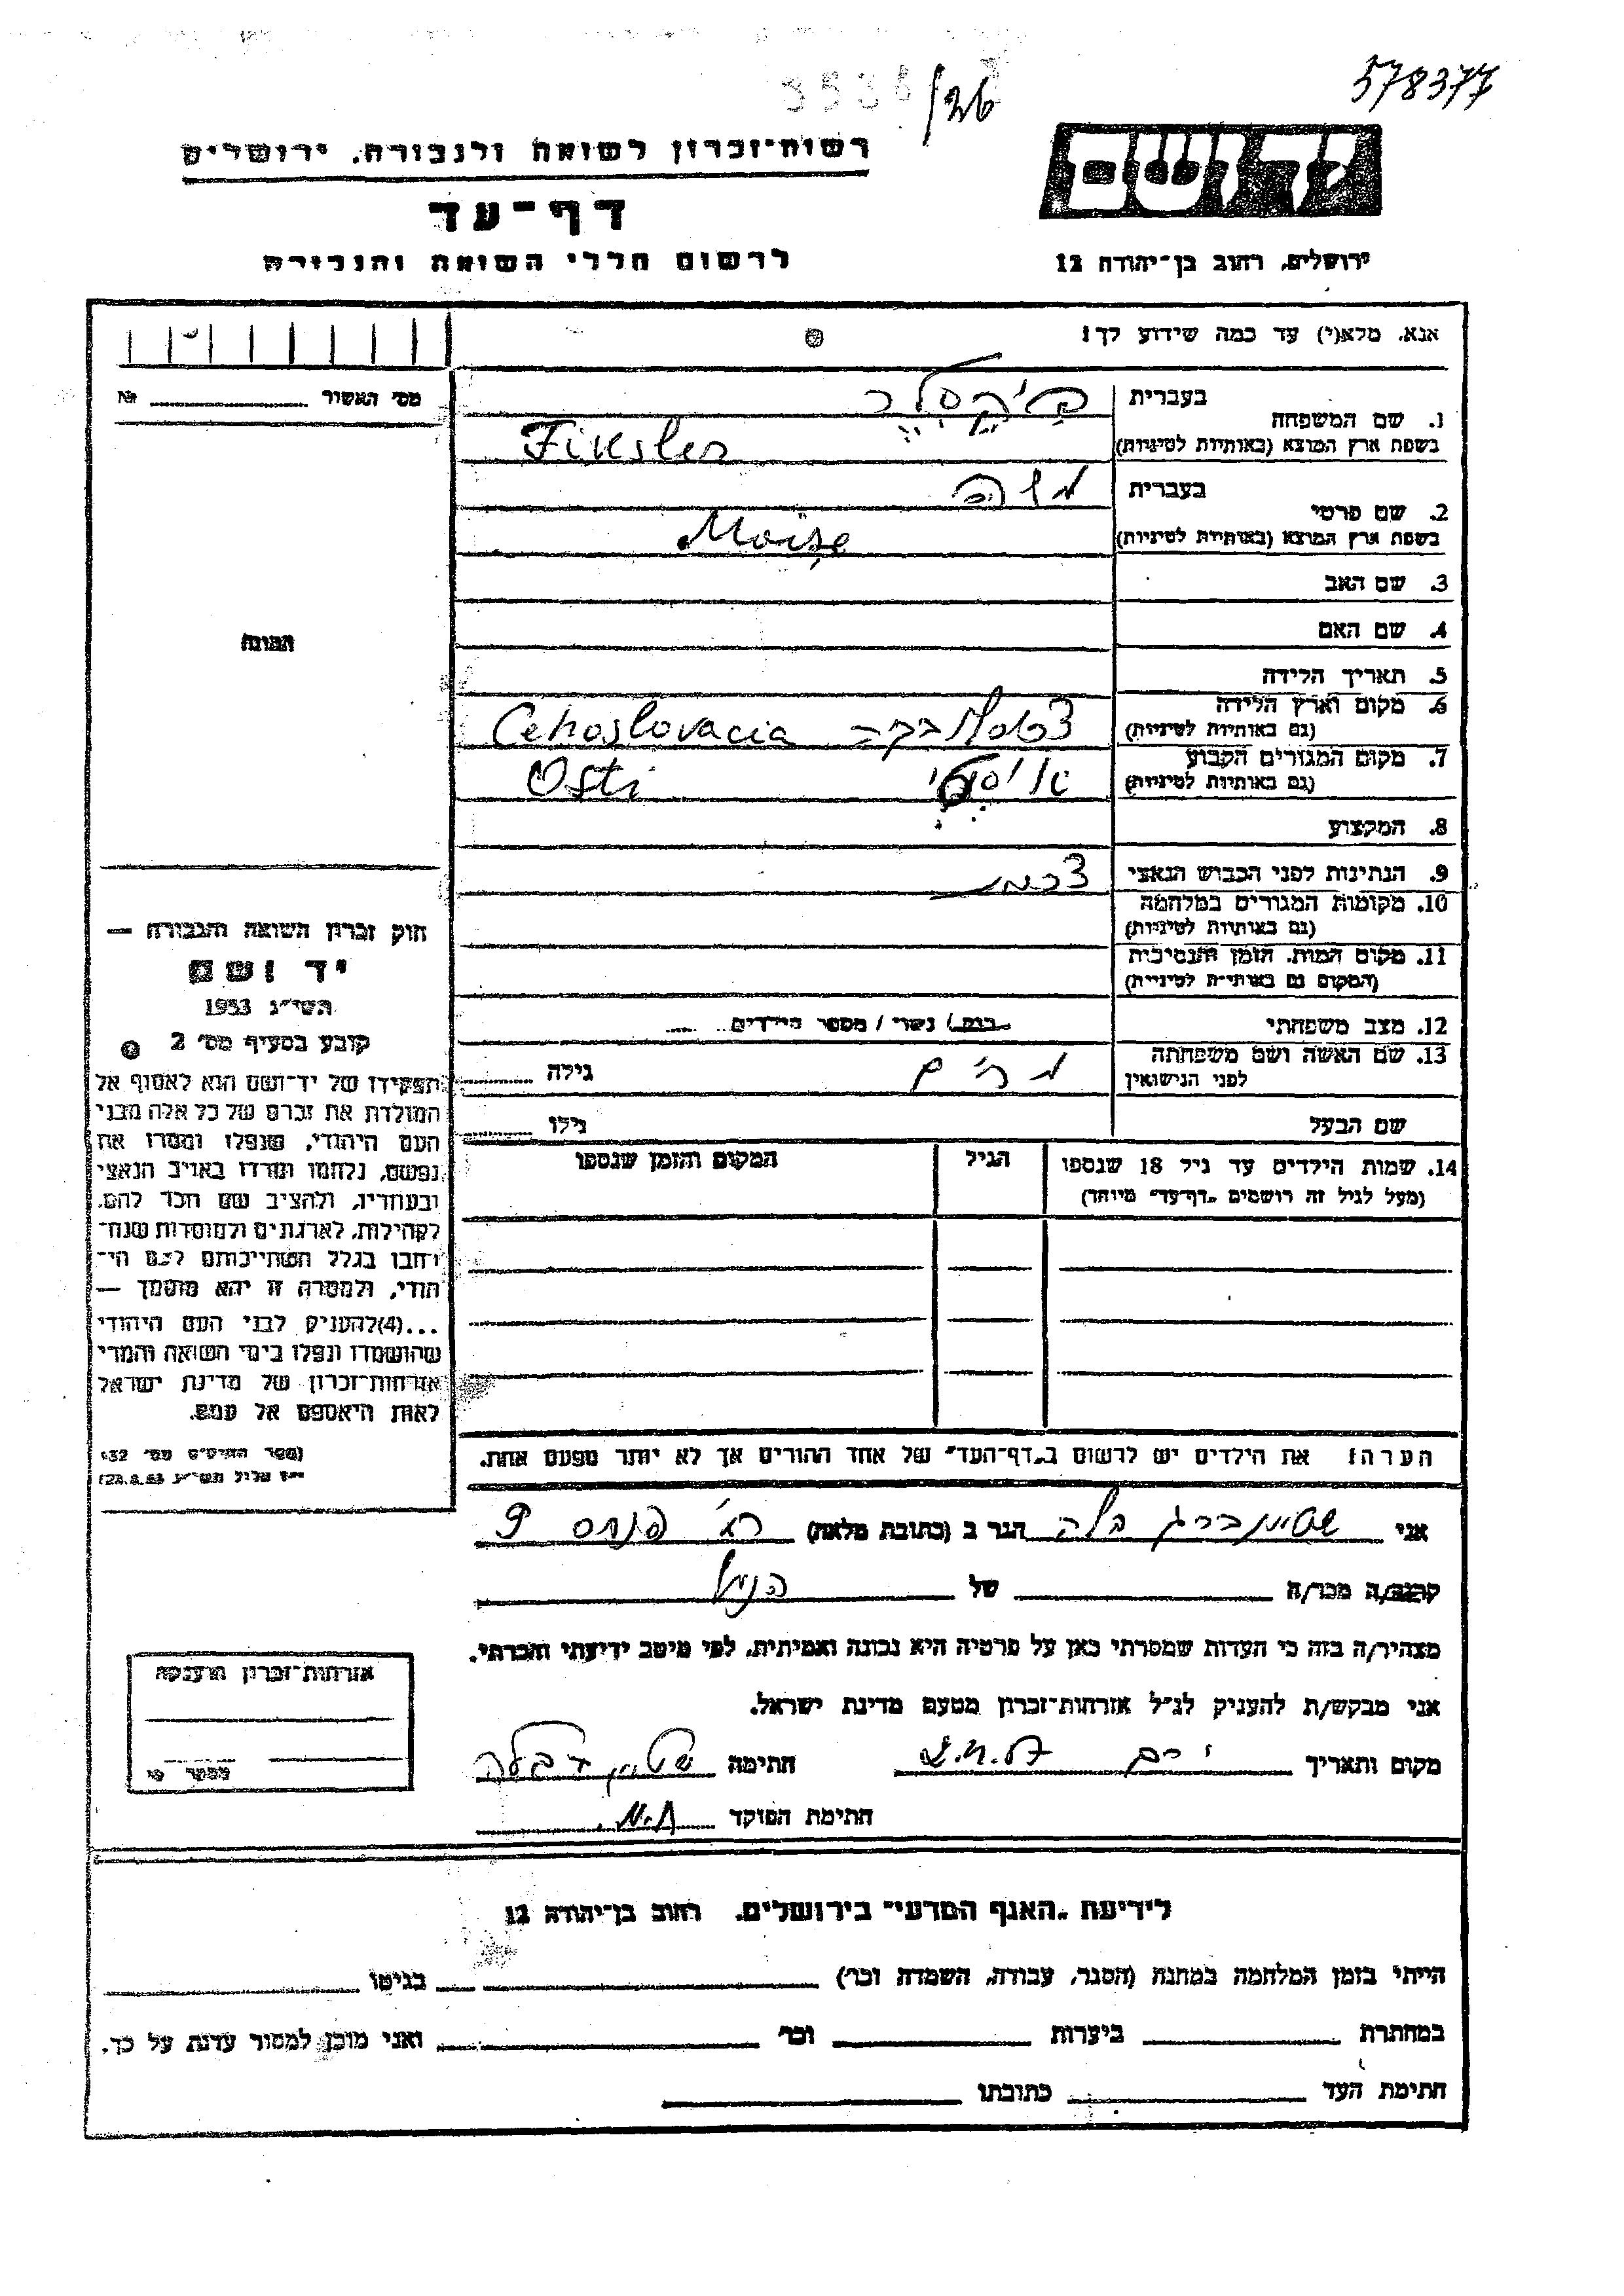 578377
3536/26
רשות-זכרון לשואה ולגבורה, ירושלים
דף-עד
לרשום חללי השואה והגבורה
יד ושם
ירושלים, רחוב בן-יהודה 12
אנא, מלא(י) עד כמה שידוע לך!
מס' האשור № 
1. שם המשפחה
בעברית פיקסלר
בשפת ארץ המוצא (באותיות לטיניות) Fiksler
2. שם פרטי
בעברית
בשפת ארץ המוצא (באותיות לטיניות) Moişe
3. שם האב
4. שם האם
5. תאריך הלידה
6. מקום וארץ הלידה
(גם באותיות לטיניות) Cehoslovacia
7. מקום המגורים הקבוע
(גם באותיות לטיניות) אוסטי Osti
8. המקצוע
9. הנתינות לפני הכבוש הנאצי
10. מקומות המגורים במלחמה
(גם באותיות לטיניות)
11. מקום המות, הזמן והנסיבות
(המקום גם באותיות לטיניות)
12. מצב משפחתי רווק / נשוי / מספר הילדים
13. שם האשה ושם משפחתה
לפני הנישואין מרים גילה
שם הבעל גילו
14. שמות הילדים עד גיל 18 שנספו
(מעל לגיל זה רושמים "דף-עד" מיוחד)
הגיל
המקום והזמן שנספו
הערה: את הילדים יש לרשום ב"דף-העד" של אחד ההורים אך לא יותר מפעם אחת.
תמונה
חוק זכרון השואה והגבורה —
יד ושם
תשי"ג 1953
קובע בסעיף מס' 2
תפקידו של יד-ושם הוא לאסוף אל
המולדת את זכרם של כל אלה מבני
העם היהודי, שנפלו ומסרו את
נפשם, נלחמו ומרדו באויב הנאצי
ובעוזריו, ולהציב שם וזכר להם,
לקהילות, לארגונים ולמוסדות שנח-
רבו בגלל השתייכותם לעם הי-
הודי, ולמטרה זו יהא מוסמך —
...(4) להעניק לבני העם היהודי
שהושמדו ונפלו בימי השואה והמרי
אזרחות-זכרון של מדינת ישראל
לאות היאספם אל עמם.
(ספר החוקים מס' 132
י"ז אלול תשי"ג 28.8.53)
אני שטיינברג בלה הגר ב (כתובת מלאה) פנחס 9
קרוב/ה מכר/ה של הנ"ל
מצהיר/ה בזה כי העדות שמסרתי כאן על פרטיה היא נכונה ואמיתית, לפי מיטב ידיעתי והכרתי.
אני מבקש/ת להעניק לנ"ל אזרחות-זכרון מטעם מדינת ישראל.
מקום ותאריך חתימה
חתימת הפוקד
אזרחות-זכרון הוענקה
מספר
לידיעת "האגף המדעי" בירושלים, רחוב בן-יהודה 12
הייתי בזמן המלחמה במחנה (הסגר, עבודה, השמדה וכו') בגיטו
במחתרת ביערות וכו' ואני מוכן למסור עדות על כך.
חתימת העד כתובתו